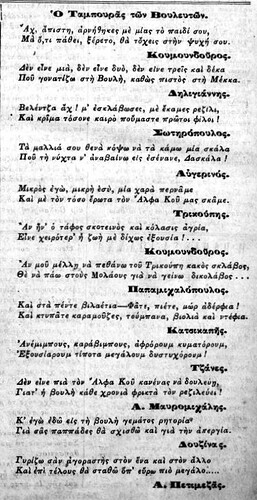 Ὁ Ταμπουρᾶς τῶν Βουλευτῶν.
Ἄχ, ἄπιστη, ἀρνήθηκες μὲ μίας τὸ παιδί σου,
Μὰ ὅ,τι πάθει, ξέρετο, θὰ τὄχεις στὴν ψυχή σου.
Κουμουνδοῦρος.
Δὲν εἶνε μιά, δὲν εἶνε δυό, δὲν εἶνε τρεῖς καὶ δέκα
Ποῦ γονατίζω στὴ Βουλή, καθὼς πιστὸς στὴ Μέκκα.
Δηλιγιάννης.
Βελέντζα ἄχ! μ' ἐσκλάβωσες, μὲ ἔκαμες ρεζίλι,
Καὶ κρῖμα τόσονε καιρὸ ποὔμαστε πρῶτοι φίλοι!
Σωτηρόπουλος.
Τὰ μαλλιά σου θενὰ κόψω νὰ τὰ κάμω μία σκάλα
Ποῦ τὴ νύχτα ν' ἀναβαίνω εἰς ἐσένανε, Δασκάλα!
Αὐγερινός.
Μικρὸς ἐγώ, μικρὴ ἐσύ, μία χαρὰ περνᾶμε
Καὶ μὲ τὸν τόσο ἔρωτα τὸν Ἄλφα Κοῦ μας σκᾶμε.
Τρικούπης.
Ἂν ᾖν' ὁ τάφος σκοτεινὸς καὶ κόλασις ἀγρία,
Εἶνε χειρότερ' ἡ ζωὴ μὲ δίχως ἐξουσία!...
Κουμουνδοῦρος.
Ἂν μοῦ μέλλῃ νὰ πεθάνω τοῦ Τρικούπη κακὸς σκλάβος,
Θὲ νὰ πάω στοὺς Μολάους γιὰ νὰ γείνω δικολάβος...
Παπαμιχαλόπουλος.
Καὶ στὰ πέντε βιλαέτια—Φᾶτε, πιέτε, μὼρ ἀδέρφια!
Καὶ κτυπᾶτε καραμοῦζες, τούμπανα, βιολιὰ καὶ ντέφια.
Κατσικαπῆς.
Ἀνέμιμπους, καράβιμπους, ἀφρόρουμ κυματόρουμ,
Ἐξουσίαρουμ τίποτα μεγάλουμ δυστυχόρουμ!
Τζάνες.
Δὲν εἶνε πιὰ τὸν Ἄλφα Κοῦ κανένας νὰ δουλεύῃ,
Γιατ' ἡ βουλὴ κάθε χρονιὰ φρικτὰ τὸν ρεζιλεύει!
Α. Μαυρομιχάλης.
Κ' ἐγὼ ἐδῶ εἰς τὴ βουλὴ γεμάτος ρητορία
Γιὰ σᾶς παππάδες θὰ σχισθῶ καὶ γιὰ τὴν ἀπεργία.
Δουζίνας.
Γυρίζω σὰν μ̓γοραστὴς στὸν ἕνα καὶ στὸν ἄλλο
Καὶ ἐπὶ τέλους θὰ σταθῶ ὅπ' εὕρω πιὸ μεγάλο....
Α. Πετιμεζᾶς.